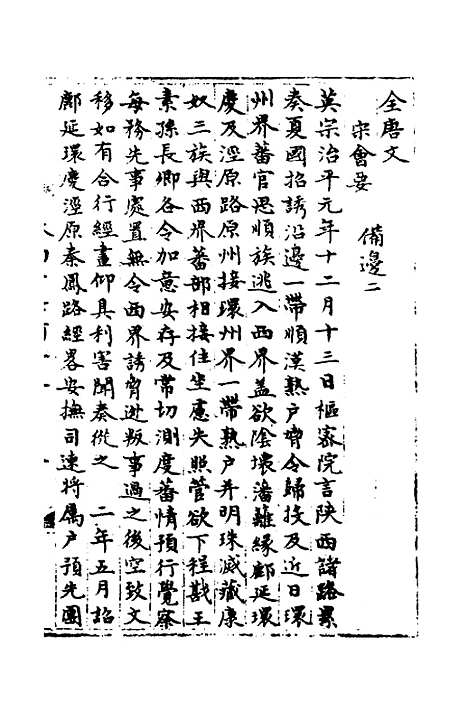 全唐文
宋會要
備邊二
英宗治平元年十二月十三日樞密院言陝西諸路累
奏夏國招誘沿邊一帶順漢熟户脅令歸投及近日環
州界蕃官思順族逃入西界蓋欲陰壞藩籬緣鄜延環
慶及涇原路原州接環州界一帶熟户并明珠滅藏康
奴三族與西界蕃部相接住坐慮失照管欲下程戡王
素孫長卿各令加意安存及常切測度蕃情預行覺察
每務先事處置無令西界誘脅逃叛事過之後空致文
移如有合行經畫仰具利害聞奏從之 二年五月詔
鄜延環慶涇原秦鳳路經畧安撫司速將屬户預先團